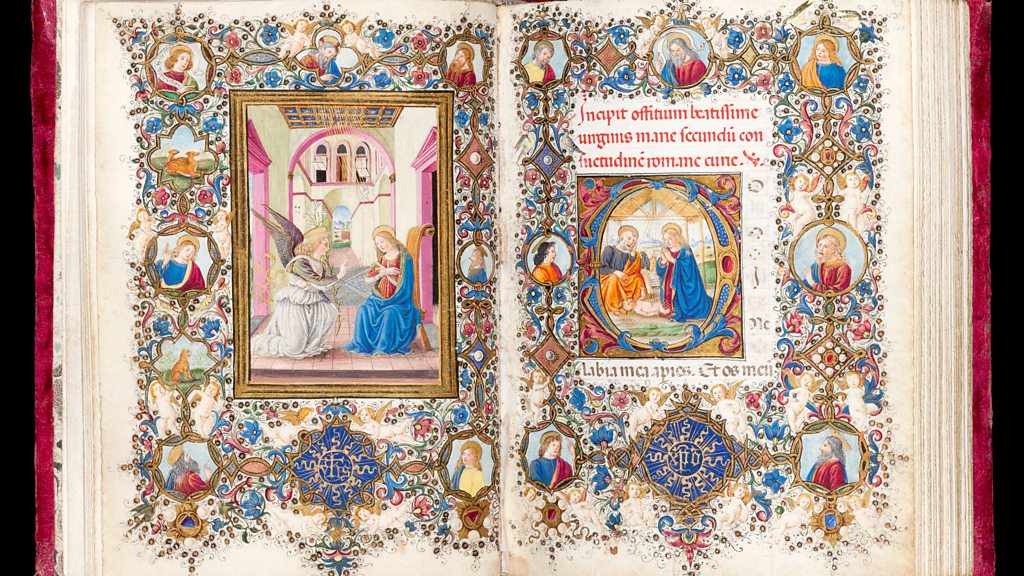 Incipit offitium beatissime
uirginis marie secundū con
suetudinē romane curie
labia mea apies. Et os meū